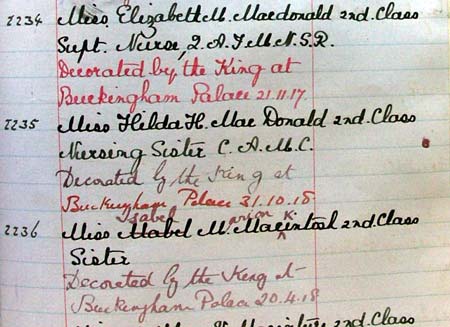 2234 Miss Elizabeth M. Macdonald 2nd. Class
Supt. Nurse, Q.A.I.M.N.S.R.
Decorated by the King at
Buckingham Palace 21.11.17.
2235 Miss Hilda H. MacDonald 2nd. Class
Nursing Sister C.A.M.C.
Decorated by the King at
Buckingham Palace 31.10.18
Isabel arion K
2236 Miss Mabel M. Macintosh 2nd. Class
Sister
Decorated by the King at
Buckingham Palace 20.4.18